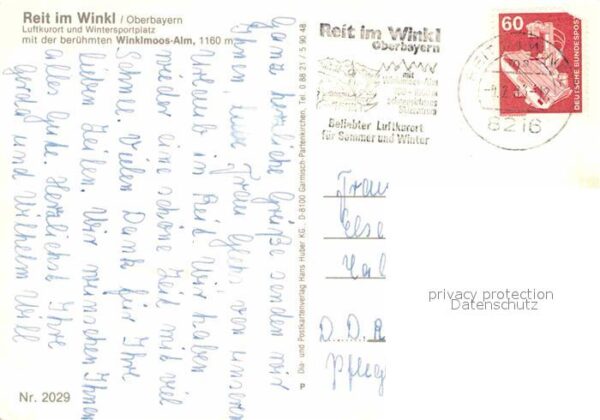 Reit im Winkl / Oberbayern
Luftkurort und Wintersportplatz
mit der berühmten Winklmoos-Alm, 1160 m
Ganz herzliche Grüße senden wir
Ihnen liebe Frau aus unserem
Urlaub in Reit. Wir haben
wieder eine schöne Zeit mit viel
Schnee. Vielen Dank für Ihre
lieben Zeilen. Wir wünschen Ihnen
alles Gute. Herzlichst Ihre
und Wilhelm Will
Nr. 2029
Dia- und Postkartenverlag Hans Huber KG., D-8100 Garmisch-Partenkirchen, Tel. 0 88 21 - 5 90 48
P
Reit im Winkl
Oberbayern
mit
Beliebter Luftkurort
für Sommer und Winter
8216
60
DEUTSCHE BUNDESPOST
Frau
Else
D.D.R
privacy protection
Datenschutz